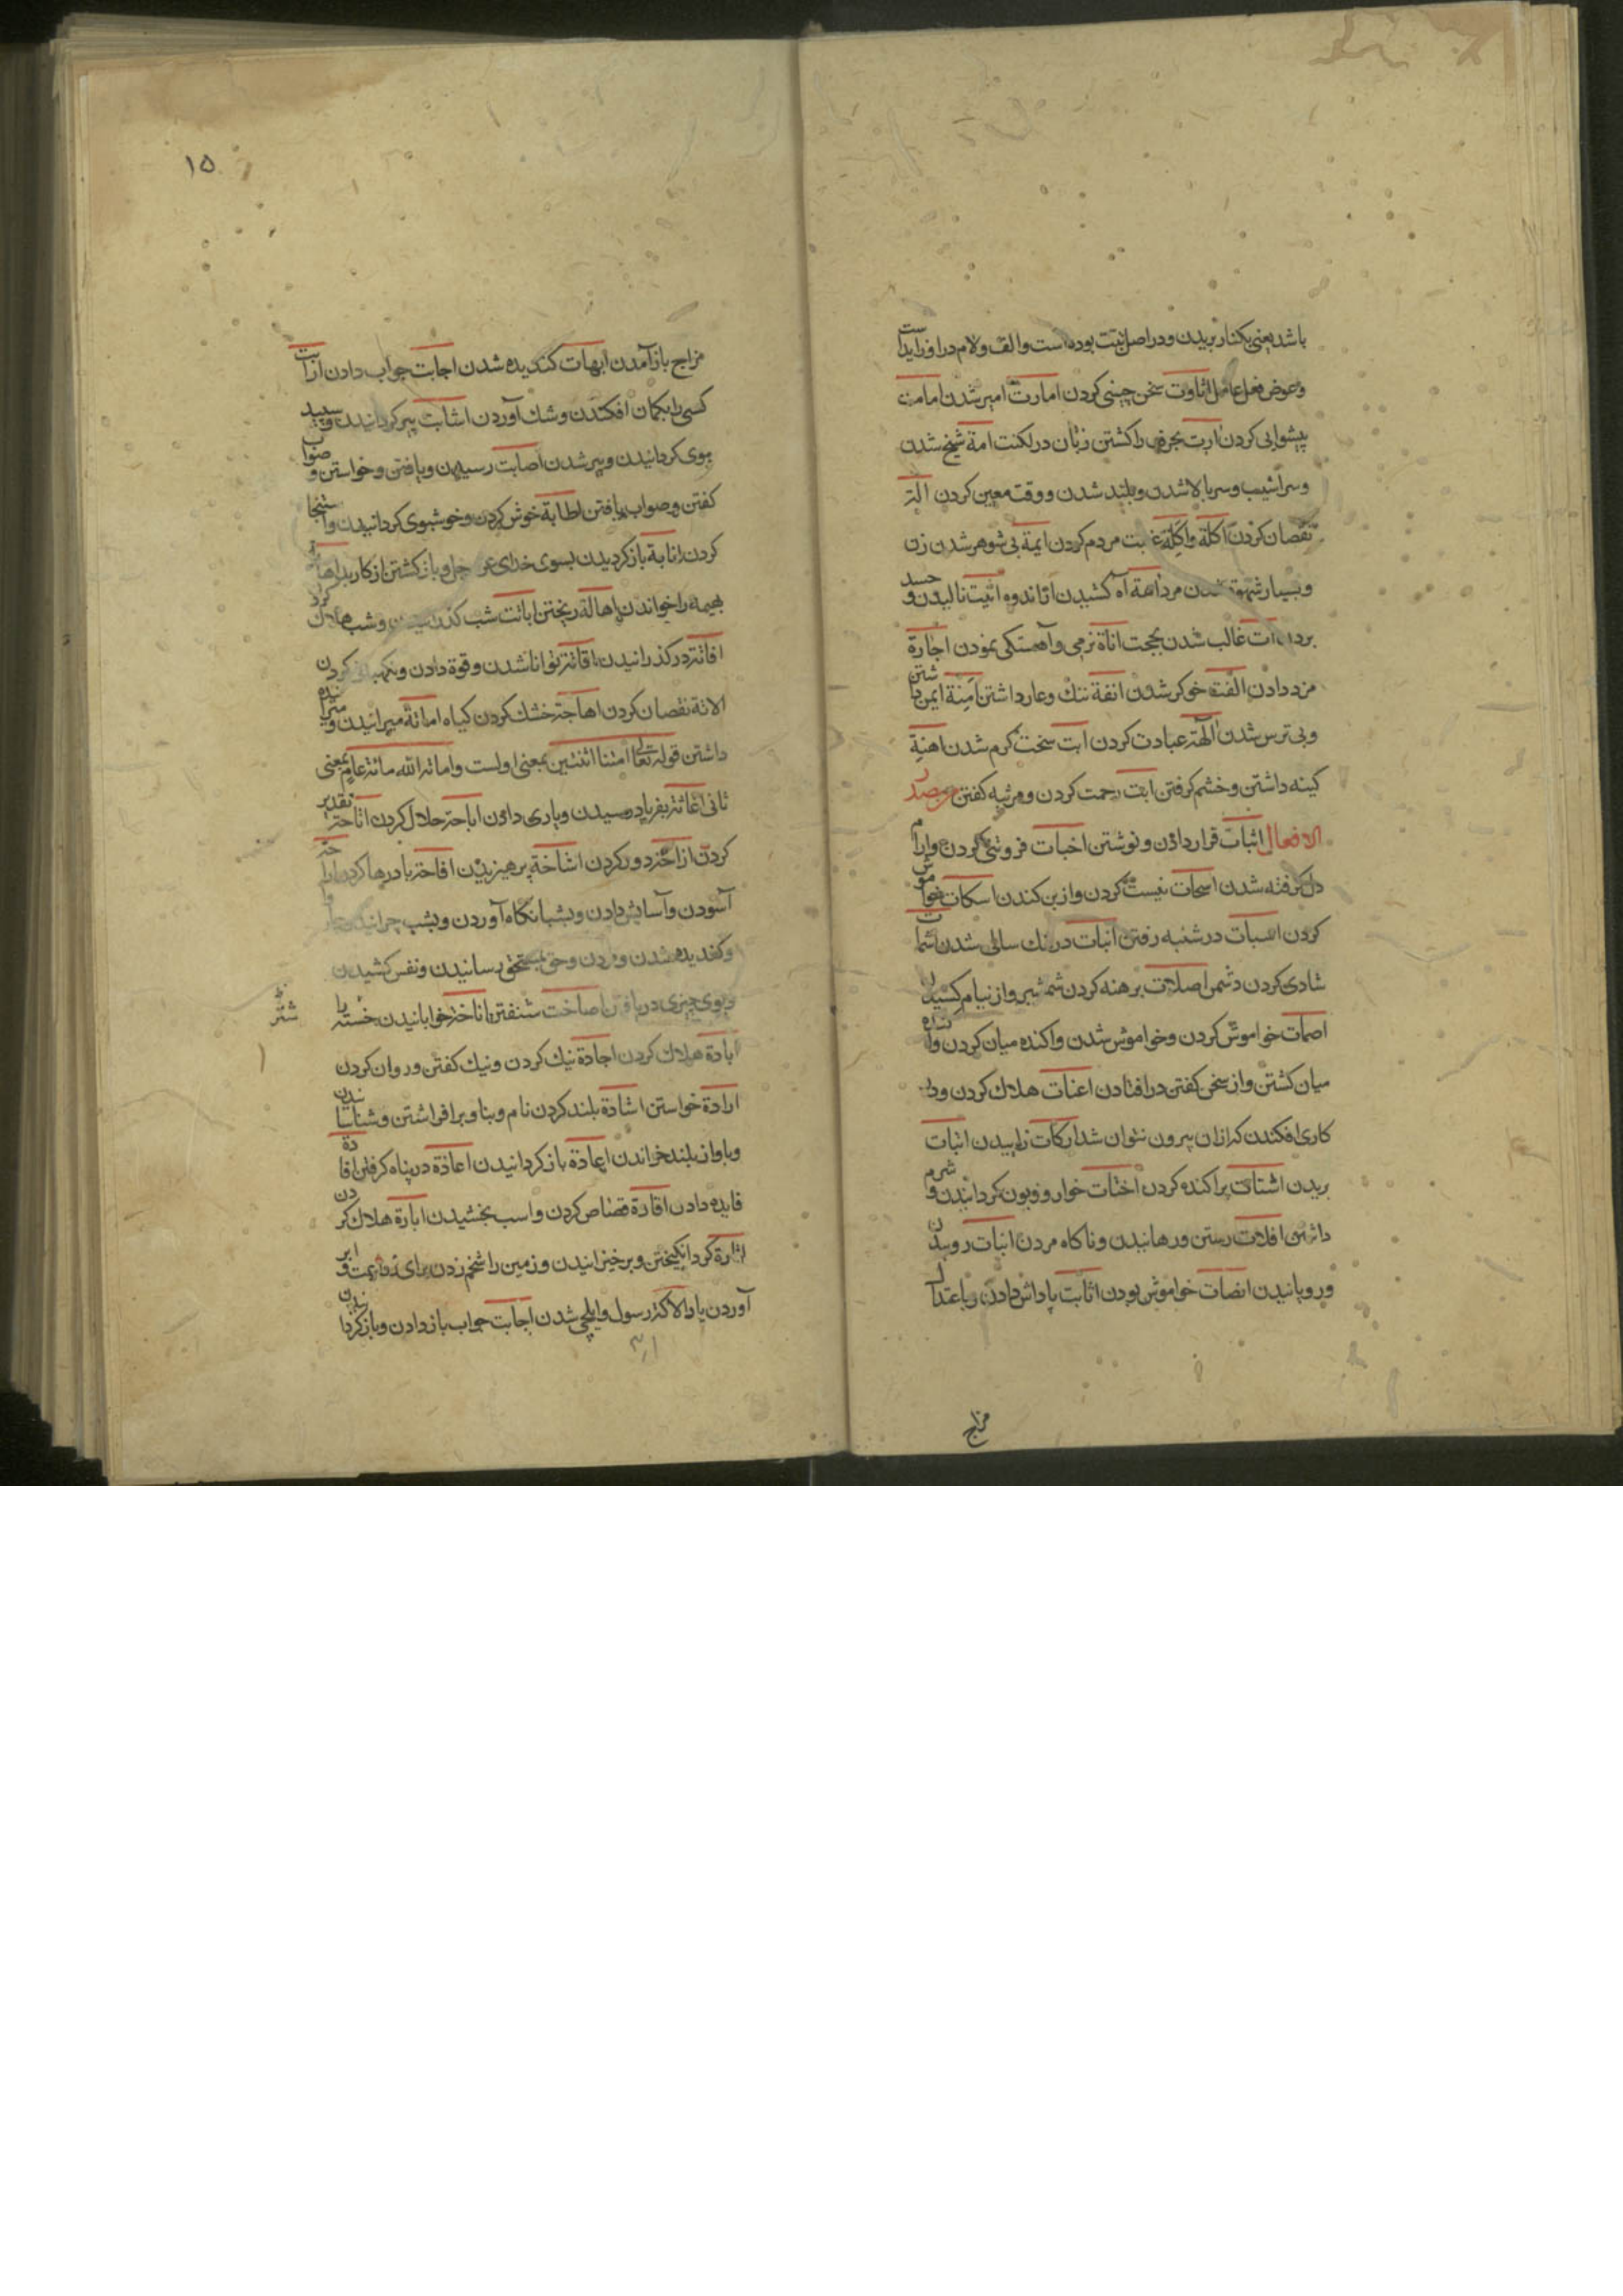 باشد یعنی بکنار بریدن و در اصل بتت بوده است و الف و لام در او زاید است
و عوض فعل عامل اثاوت سخن چینی کردن امارت امیر شدن امامت
پیشوایی کردن ارت بحرفی را کشتن زبان در لکنت امة شیخ شدن
و سراشیب و سربالا شدن و بلند شدن و وقت معین کردن الة
نقصان کردن اکلة واکلة غیبت مردم کردن ایمة بی شوهر شدن زن
و بسیار شهوة شدن مرد اهة آه کشیدن از اندوه انیت نالیدن و حسد
بردن ات غالب شدن بحجت اناة نرمی و آهستکی نمودن اجارة
مزد دادن الفت خوکر شدن انفة ننک و عار داشتن امنة ایمن داشتن
و بی ترس شدن الهة عبادت کردن ابت سخت کرم شدن اهنة
کینه داشتن و خشم کرفتن ابت رحمت کردن و مرثیه کفتن مصدر
الافعال اثبات قرار دادن و نوشتن اخبات فروتنی کردن و آرام
دل کرفته شدن اسحات نیست کردن و از بن کندن اسکات خواموش
کردن اسبات در شنبه رفتن انبات درنک سالی شدن اشمات
شادی کردن دشمن اصلات برهنه کردن شمشیر و از نیام کشیدن
اصمات خواموش کردن و خواموش شدن و اکنده میان کردن و اکنده
میان کشتن و از سخن کفتن در افتادن اعنات هلاک کردن و در
کاری افکندن که ازان بیرون نتوان شد ارکات زاییدن انبات
بریدن اشتات پراکنده کردن اخنات خوار و زبون کردانیدن و شرم
داشتن افلات رستن و رهانیدن و ناکاه مردن انبات روییدن
و رویانیدن انصات خواموش بودن اثابت پاداش دادن و باعتدال
مزاج
۱۵
مزاج باز آمدن ابهات کندیده شدن اجابت جواب دادن ارابت
کسی را بکمان افکندن و شک آوردن اشابت پیر کردانیدن و سپید
موی کردانیدن و پیر شدن اصابت رسیدن و یافتن و خواستن و صواب
کفتن و صواب یافتن اطابة خوش کردن و خوشبوی کردانیدن و استنجا
کردن انابة باز کردیدن بسوی خدای عز و جل و باز کشتن از کار بد اهابة
بهیمه را خواندن اهالة ریختن اباتت شب کذرانیدن و شب هلاک کرد
افاتة در کذرانیدن اقاتة توانا شدن و قوة دادن و نکهبانی کردن
الاتة نقصان کردن اهاجة خشک کردن کیاه اماتة میرانیدن و میرانده
داشتن قوله تعالی امتنا اثنتین بمعنی اولست و اماته الله مائة عام بمعنی
ثانی اغاثة بفریاد رسیدن و یاری دادن اباحة حلال کردن اتاحة تقدیر
کردن ازاحة دور کردن اشاحة پرهیزیدن افاحة بادرها کردن اراحة
آسودن و آسایش دادن و بشبانکاه آوردن و بشب چرانیدن
و کندیده شدن و مردن و حق بمستحق رسانیدن و نفس کشیدن
و بوی چیزی دریافتن اصاخت شنفتن اناخة خوابانیدن خسته یا
شتر
ابادة هلاک کردن اجادة نیک کردن و نیک کفتن و روان کردن
ارادة خواستن اشادة بلند کردن نام و بنا و بر افراشتن و شناسانیدن
و باواز بلند خواندن اعادة باز کردانیدن اعاذة در پناه کرفتن افادة
فایده دادن اقادة قصاص کردن و اسب بخشیدن ابارة هلاک کردن
اثارة کرد انکیختن و بر خیزانیدن و زمین را شخم زدن برای زراعت و ابر
آوردن باد الاکة رسول و ایلچی شدن اجابت جواب باز دادن و باز کردانیدن